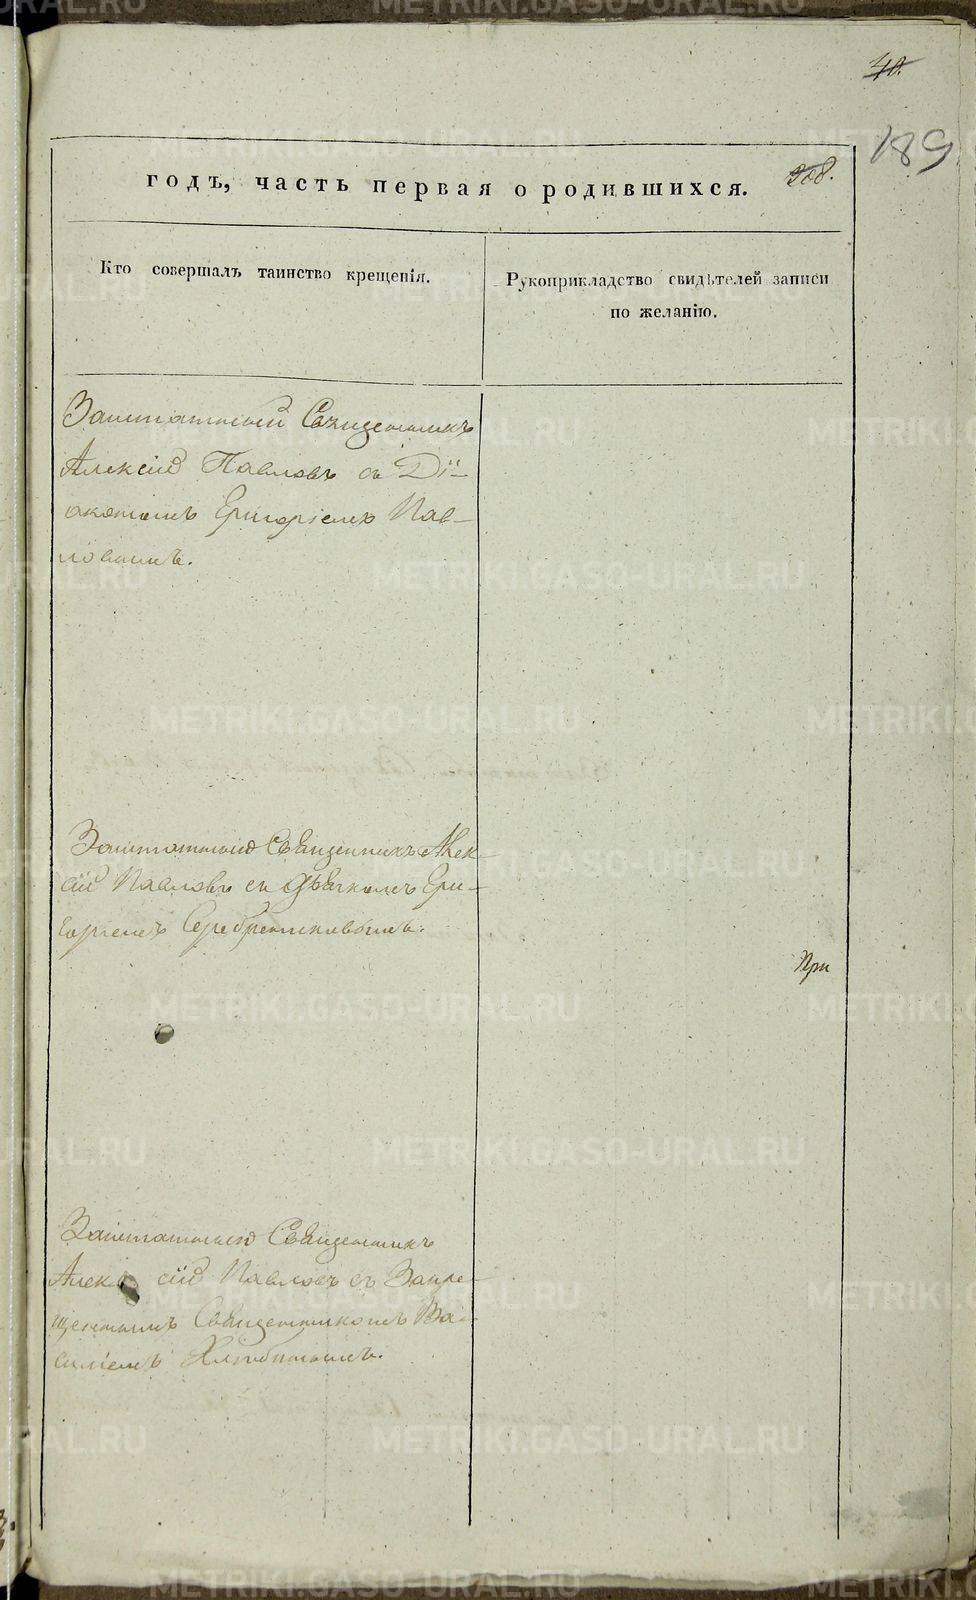 40.
189
208.
годъ, часть первая о родившихся.
Кто совершалъ таинство крещенія.
Рукоприкладство свидѣтелей записи
по желанію.
Заштатный Священникъ
Алексій Павловъ съ Дi-
акономъ Григоріемъ Пав-
ловымъ.
Заштатный Священникъ Алек-
сій Павловъ съ Дьячкомъ Гри-
горіемъ Серебренниковымъ.
При
Заштатный Священникъ
Алексій Павловъ съ Запре-
щеннымъ Священникомъ Ва-
силіемъ
METRIKI.GASO-URAL.RU